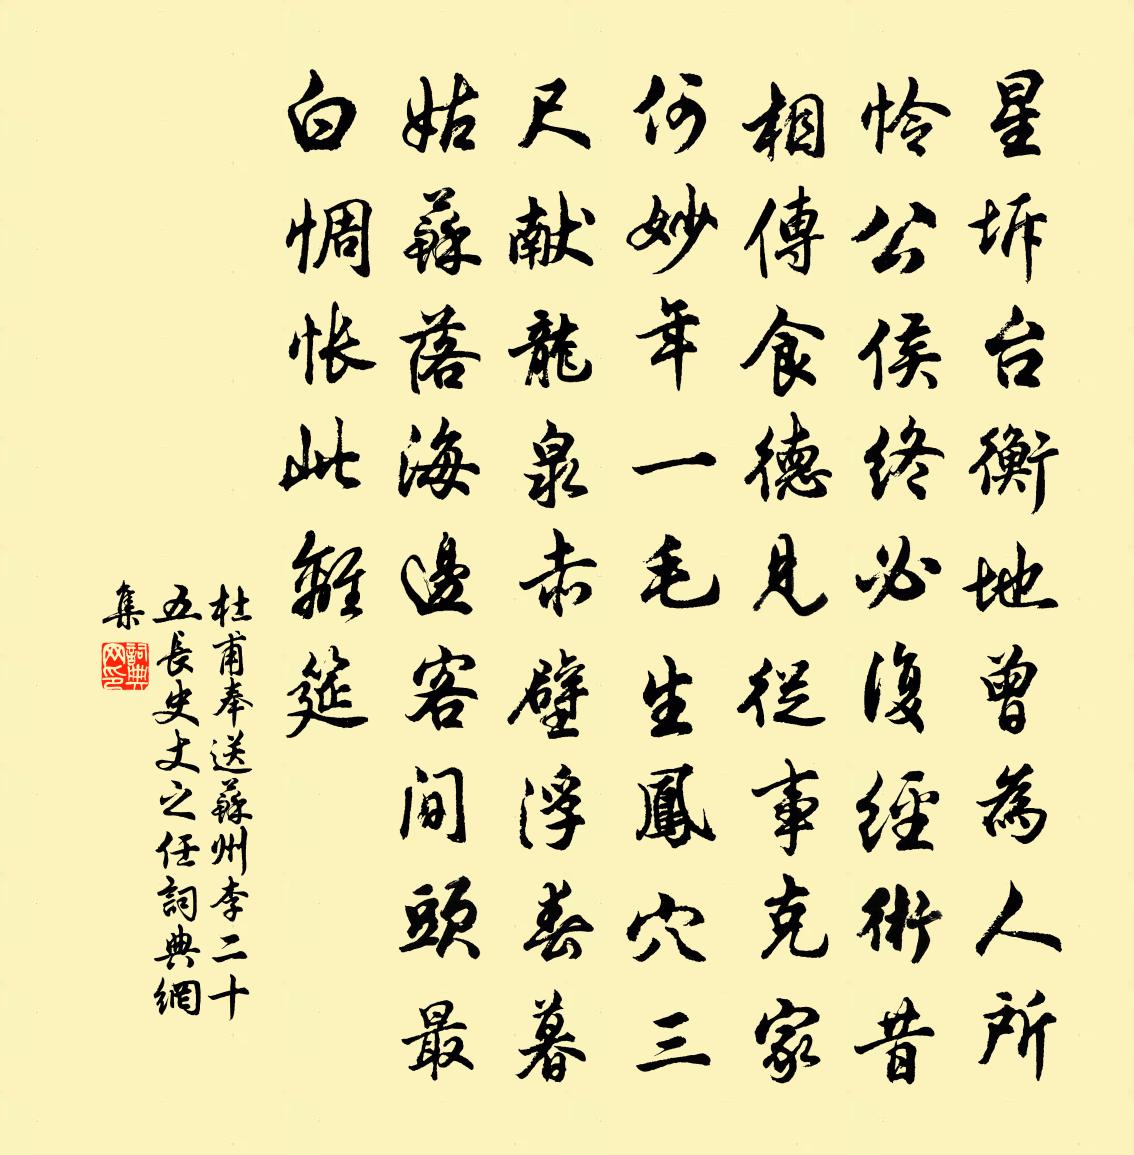 星坼台衡地曾為人所
怜公侯終必復經術昔
相傳食德見從事克家
何妙年一毛生鳳穴三
尺献龍泉赤壁浮春暮
姑蘇落海邊客間頭最
白惆悵此離筵
杜甫奉送蘇州李二十
五長史丈之任詞典網
集
詞典
网印